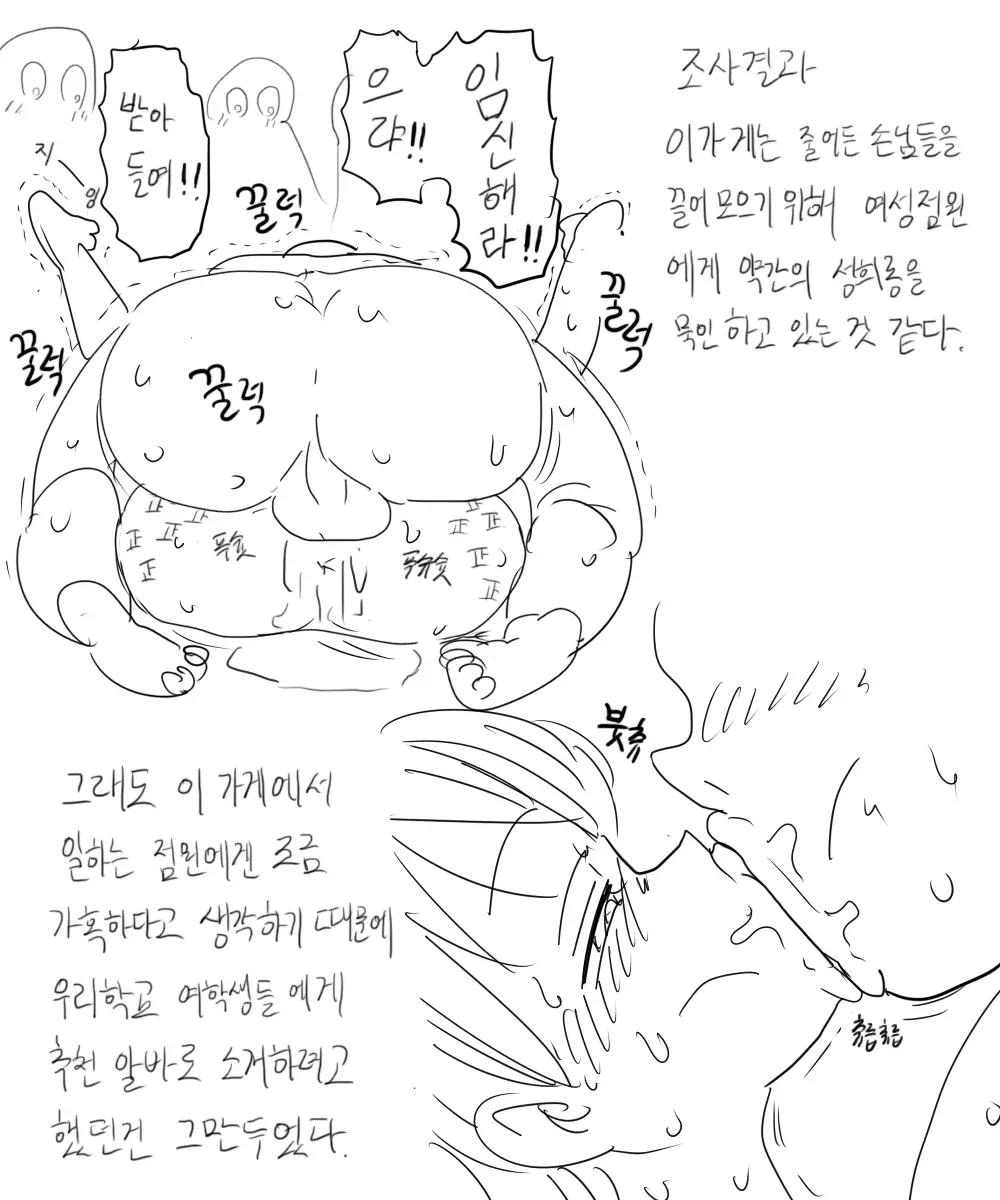 조사결과
이가게는 줄어든 손님들을
끌어 모으기 위해 여성점원
에게 약간의 성희롱을
묵인 하고 있는 것 같다.
임신해라!!
으랴!!
받아
들여!!
지잉
꿀럭
꿀럭
꿀럭
꿀럭
正 正 正 正 正
正 正 正 正 正
푹슛
푸슈슛
붓츄
츄릅츄릅
그래도 이 가게에서
일하는 점원에겐 조금
가혹하다고 생각하기 때문에
우리학교 여학생들 에게
추천 알바로 소개하려고
했던건 그만두었다.